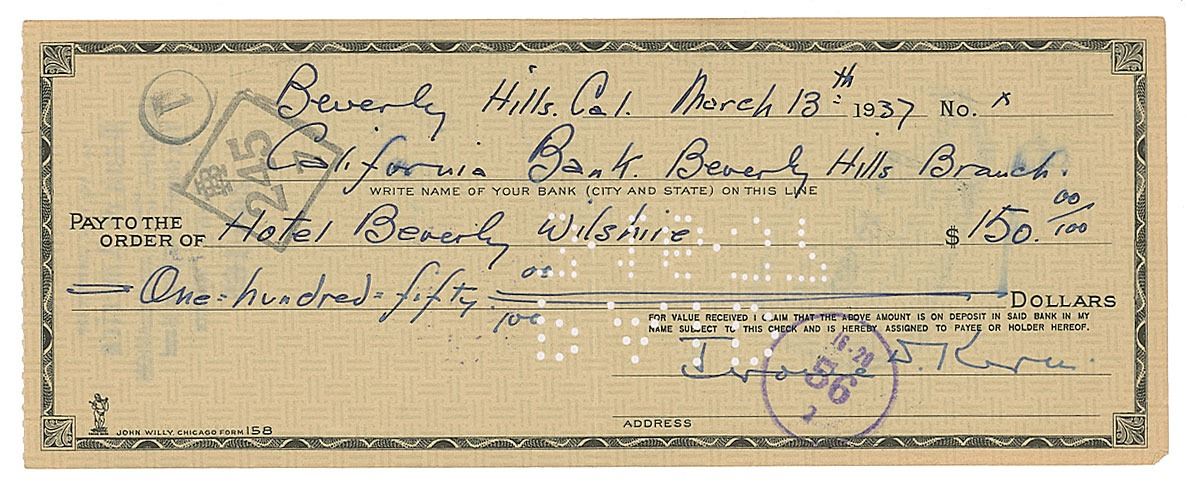 Beverly Hills. Cal. March 13th 1937 No. x
California Bank. Beverly Hills Branch.
WRITE NAME OF YOUR BANK (CITY AND STATE) ON THIS LINE
PAY TO THE
ORDER OF Hotel Beverly Wilshire $150.00/100
One=hundred=fifty 00/100 DOLLARS
FOR VALUE RECEIVED I CLAIM THAT THE ABOVE AMOUNT IS ON DEPOSIT IN SAID BANK IN MY
NAME SUBJECT TO THIS CHECK AND IS HEREBY ASSIGNED TO PAYEE OR HOLDER HEREOF.
Jerome D. Kern.
ADDRESS
JOHN WILLY, CHICAGO FORM 158
1
245
27
16-20
56
2